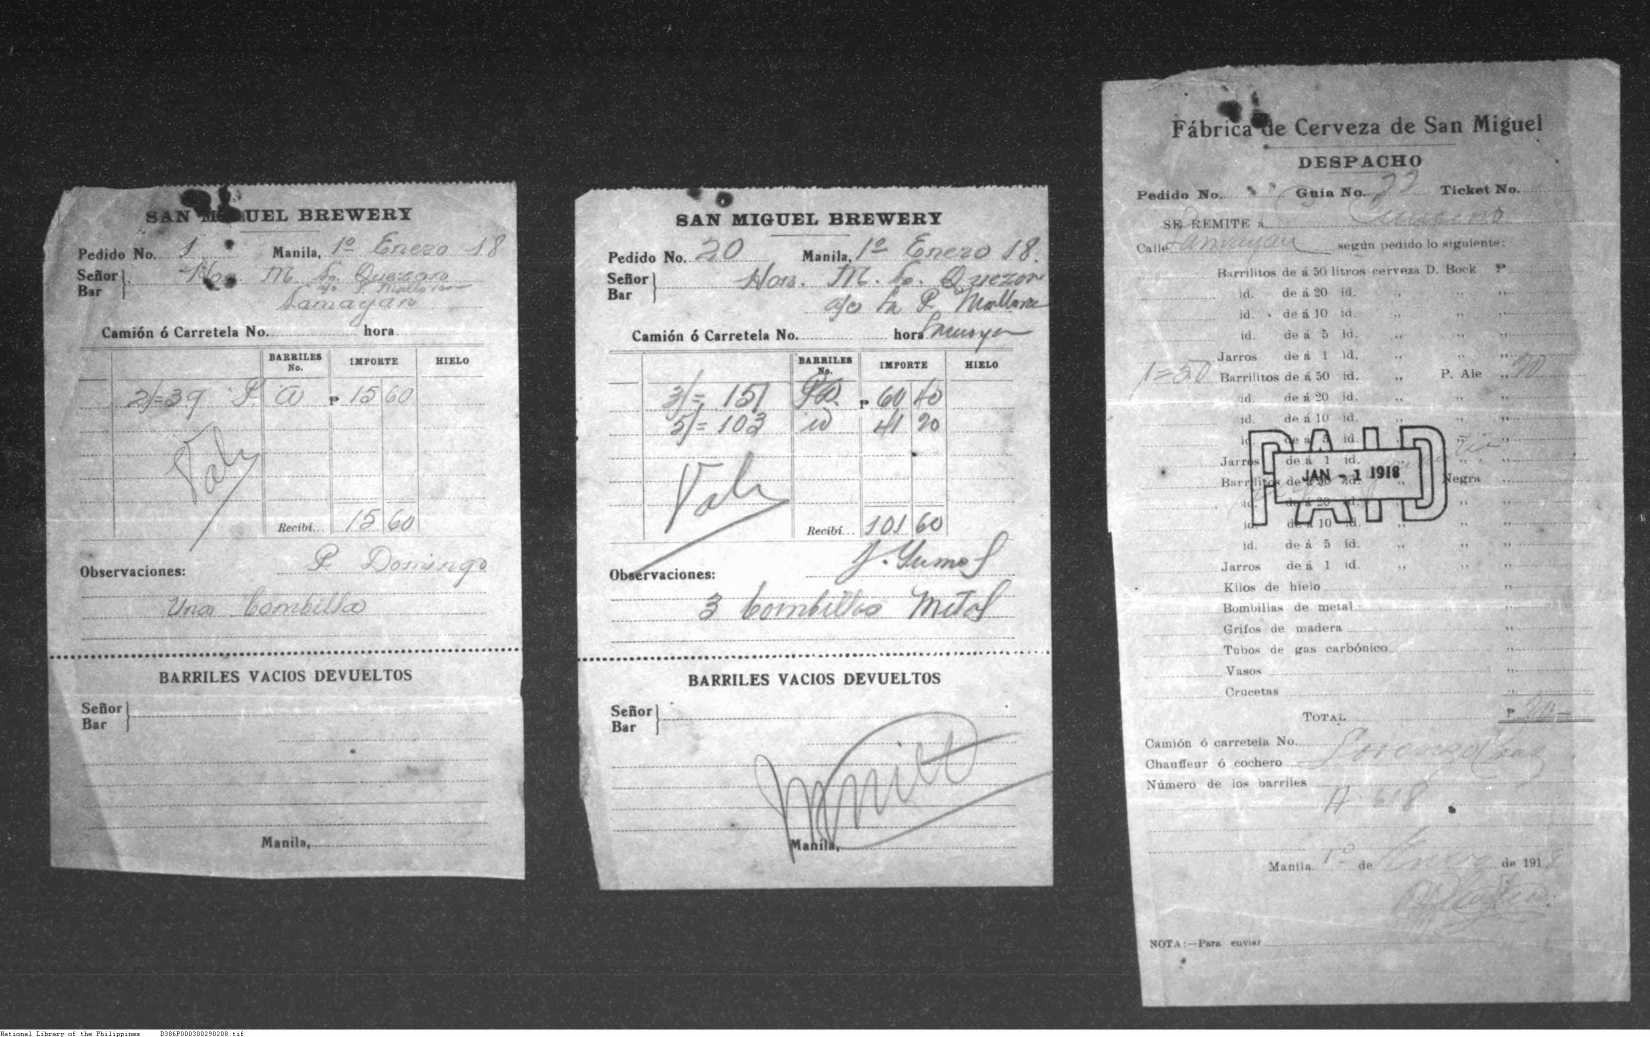 SAN MIGUEL BREWERY
Pedido No. 1 Manila, 1º Enero 18
Señor
Bar
Hon. M. L. Quezon
Lamayan
Camión ó Carretela No. hora
BARRILES No. IMPORTE HIELO
2/=39 P. a ₱ 15 60
Vale
Recibí... 15 60
P. Domingo
Observaciones:
Una bombilla
BARRILES VACIOS DEVUELTOS
Señor
Bar
Manila,
SAN MIGUEL BREWERY
Pedido No. 20 Manila, 1º Enero 18.
Señor
Bar
Hon. M. L. Quezon
Camión ó Carretela No. hora
BARRILES No. IMPORTE HIELO
3/= 151 ₱ 60 40
5/= 103 id 41 20
Vale
Recibí... 101 60
Observaciones:
3 bombillas Metal
BARRILES VACIOS DEVUELTOS
Señor
Bar
Manila,
Fábrica de Cerveza de San Miguel
DESPACHO
Pedido No. Guia No. 22 Ticket No.
SE REMITE á
Calle Lamayan según pedido lo siguiente:
Barrilitos de á 50 litros cerveza D. Bock ₱
id. de á 20 id. ,, ,, ,,
id. de á 10 id. ,, ,, ,,
id. de á 5 id. ,, ,, ,,
Jarros de á 1 id. ,, ,, ,,
1=50 Barrilitos de á 50 id. ,, P. Ale ,, 20
id. de á 20 id. ,, ,, ,,
id. de á 10 id. ,, ,, ,,
id. de á 5 id. ,, ,,
Jarros de á 1 id. ,, ,,
Barrilitos de á 50 id. Negra ,,
id. de á 20 id. ,, ,,
id. de á 10 id. ,, ,,
id. de á 5 id. ,, ,, ,,
Jarros de á 1 id. ,, ,, ,,
PAID
JAN - 1 1918
Kilos de hielo ,,
Bombillas de metal ,,
Grifos de madera ,,
Tubos de gas carbónico ,,
Vasos ,,
Crucetas ,,
TOTAL ₱ 20 —
Camión ó carretela No.
Chauffeur ó cochero Lorenzo Cruz
Número de los barriles
A 618
Manila 1º de Enero de 1918
NOTA:—Para enviar
National Library of the Philippines D386P000300290200.tif